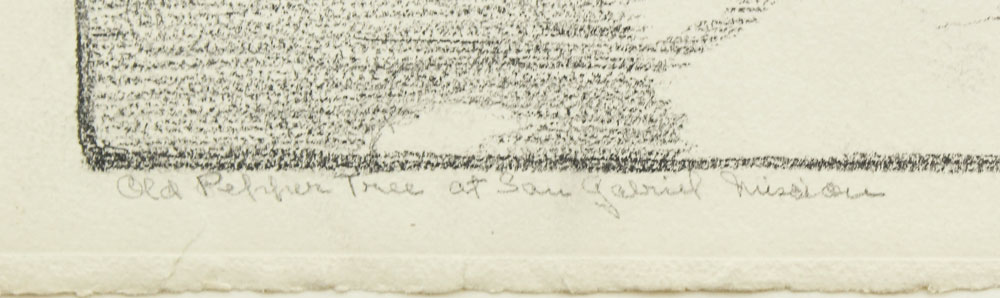 Old Pepper Tree at San Gabriel Mission